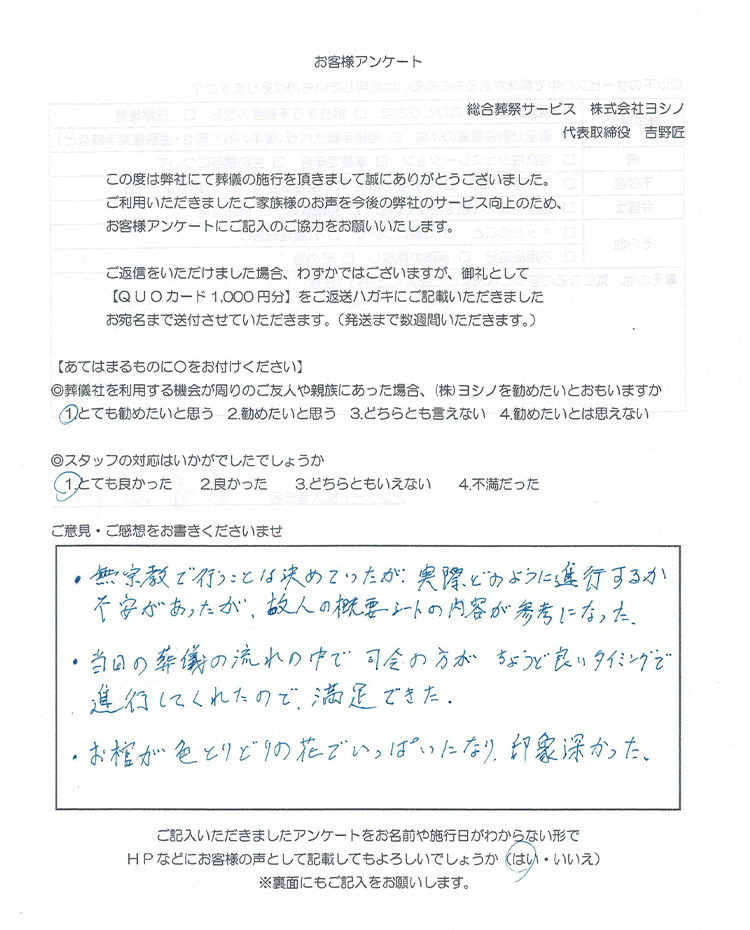 お客様アンケート
総合葬祭サービス 株式会社ヨシノ
代表取締役 吉野匠
この度は弊社にて葬儀の施行を頂きまして誠にありがとうございました。
ご利用いただきましたご家族様のお声を今後の弊社のサービス向上のため、
お客様アンケートにご記入のご協力をお願いいたします。
ご返信をいただけました場合、わずかではございますが、御礼として
【QUOカード1,000円分】をご返送ハガキにご記載いただきました
お宛名まで送付させていただきます。(発送まで数週間いただきます。)
【あてはまるものに〇をお付けください】
◎葬儀社を利用する機会が周りのご友人や親族にあった場合、(株)ヨシノを勧めたいとおもいますか
1.とても勧めたいと思う 2.勧めたいと思う 3.どちらとも言えない 4.勧めたいとは思えない
◎スタッフの対応はいかがでしたでしょうか
1.とても良かった 2.良かった 3.どちらともいえない 4.不満だった
ご意見・ご感想をお書きくださいませ
・無宗教で行うことは決めていったが、実際どのように進行するか
不安があったが、故人の概要シートの内容が参考になった。
・当日の葬儀の流れの中で 司会の方が ちょうど良いタイミングで
進行してくれたので、満足できた.
・お棺が色とりどりの花でいっぱいになり、印象深かった。
ご記入いただきましたアンケートをお名前や施行日がわからない形で
HPなどにお客様の声として記載してもよろしいでしょうか(はい・いいえ)
※裏面にもご記入をお願いします。